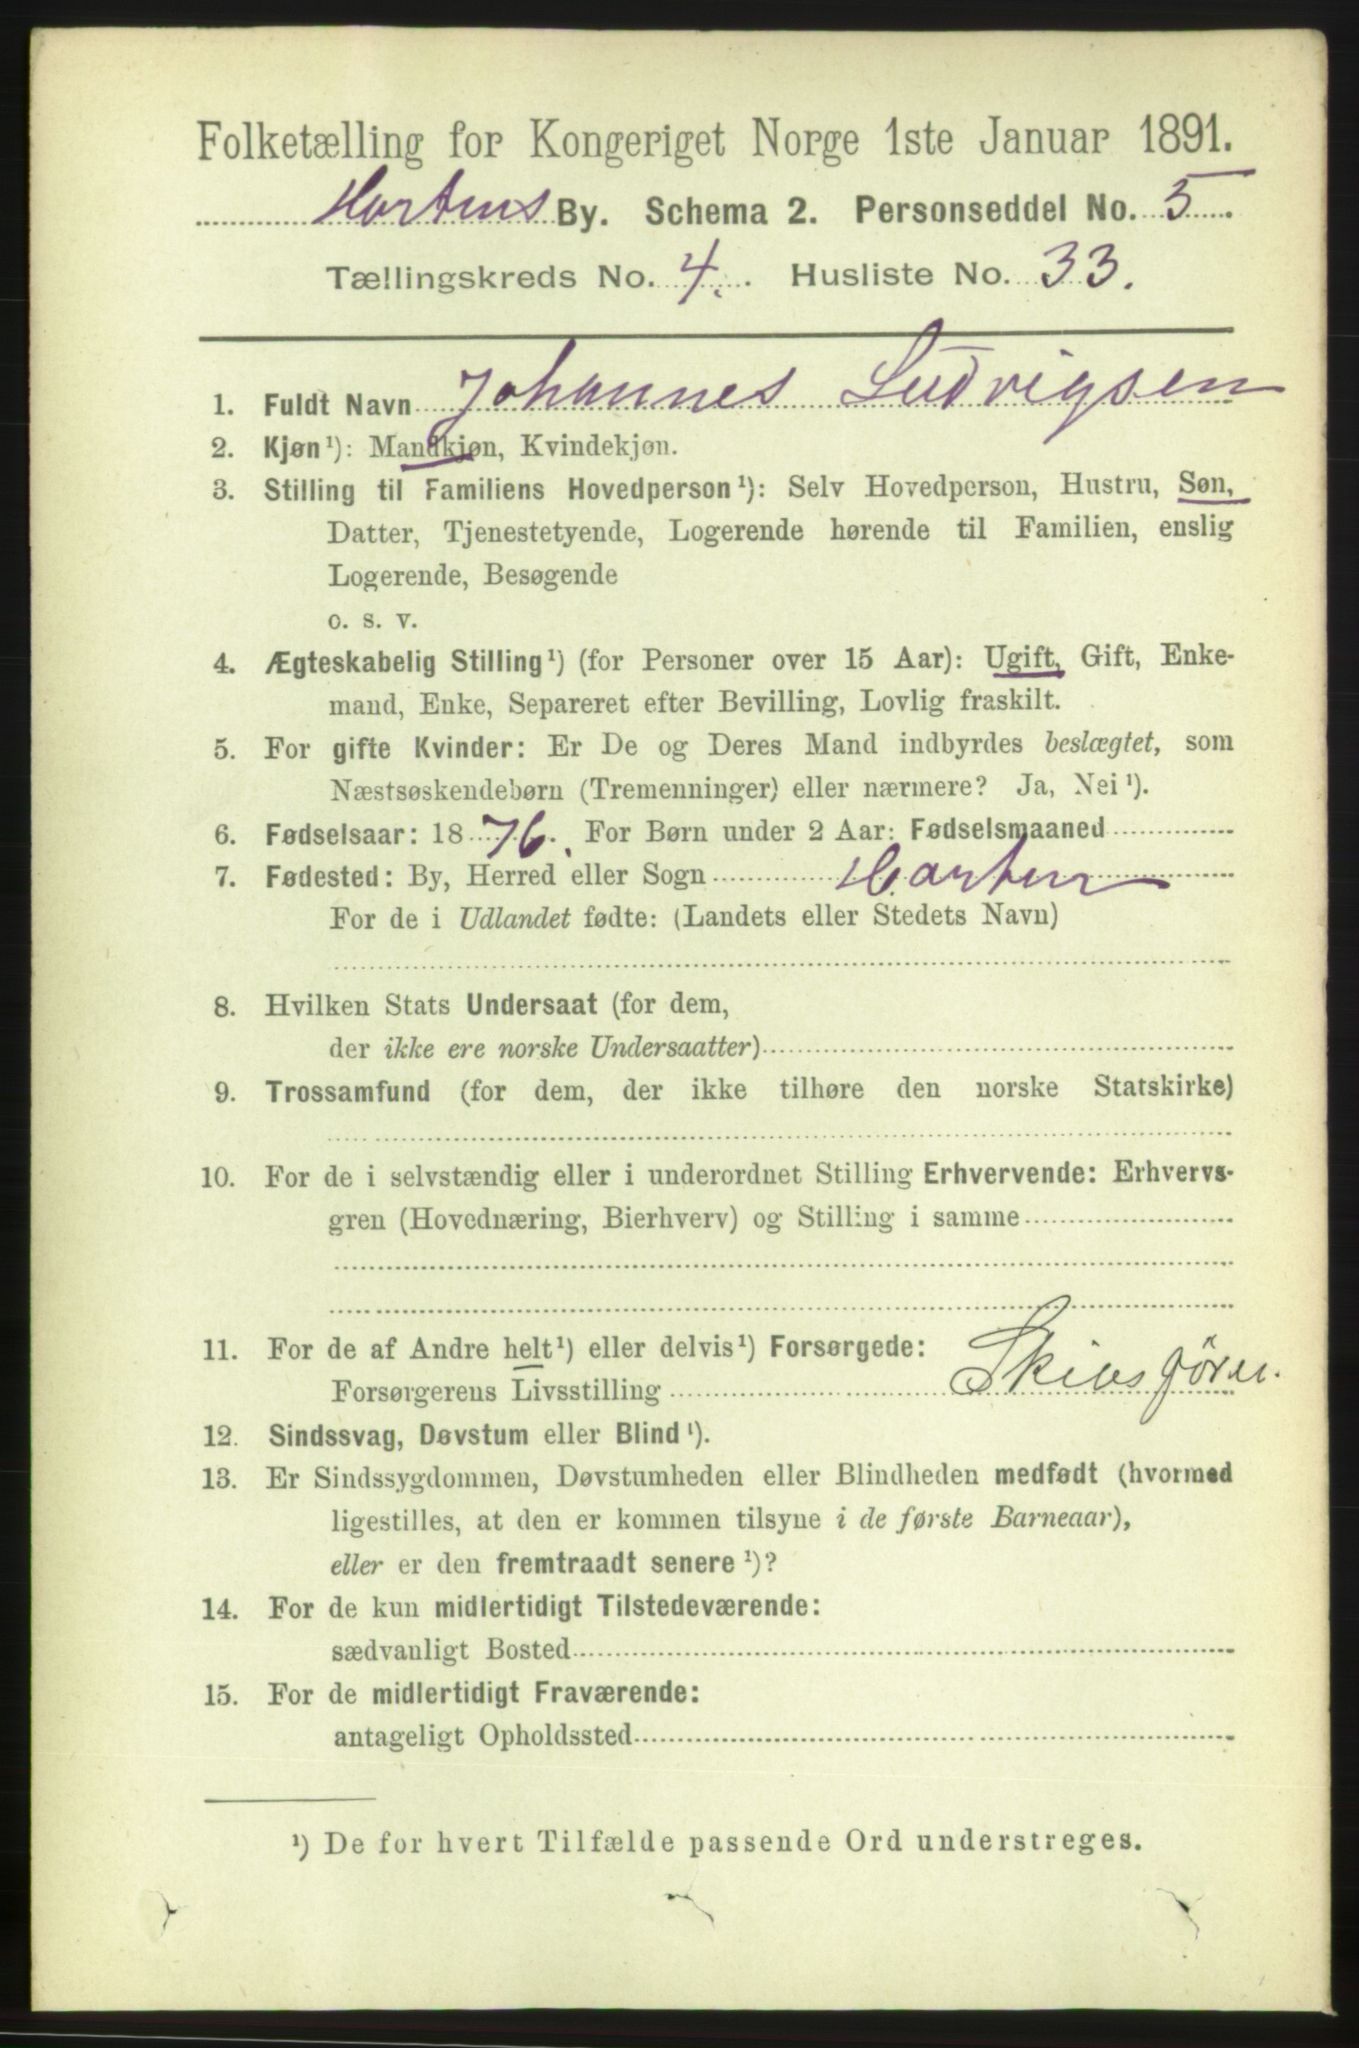 Folketælling for Kongeriget Norge 1ste Januar 1891.
Hortens By. Schema 2. Personseddel No. 5.
Tællingskreds No. 4. Husliste No. 33.
1. Fuldt Navn Johannes Ludvigsen
2. Kjøn¹): Mandkjøn, Kvindekjøn.
3. Stilling til Familiens Hovedperson¹): Selv Hovedperson, Hustru, Søn,
Datter, Tjenestetyende, Logerende hørende til Familien, enslig
Logerende, Besøgende
o. s. v.
4. Ægteskabelig Stilling¹) (for Personer over 15 Aar): Ugift, Gift, Enke-
mand, Enke, Separeret efter Bevilling, Lovlig fraskilt.
5. For gifte Kvinder: Er De og Deres Mand indbyrdes beslægtet, som
Næstsøskendebørn (Tremenninger) eller nærmere? Ja, Nei¹).
6. Fødselsaar: 1876. For Børn under 2 Aar: Fødselsmaaned
7. Fødested: By, Herred eller Sogn Horten
For de i Udlandet fødte: (Landets eller Stedets Navn)
8. Hvilken Stats Undersaat (for dem,
der ikke ere norske Undersaatter)
9. Trossamfund (for dem, der ikke tilhøre den norske Statskirke)
10. For de i selvstændig eller i underordnet Stilling Erhvervende: Erhvervs-
gren (Hovednæring, Bierhverv) og Stilling i samme
11. For de af Andre helt¹) eller delvis¹) Forsørgede:
Forsørgerens Livsstilling Skibsfører.
12. Sindssvag, Døvstum eller Blind¹).
13. Er Sindssygdommen, Døvstumheden eller Blindheden medfødt (hvormed
ligestilles, at den er kommen tilsyne i de første Barneaar),
eller er den fremtraadt senere¹)?
14. For de kun midlertidigt Tilstedeværende:
sædvanligt Bosted
15. For de midlertidigt Fraværende:
antageligt Opholdssted
¹) De for hvert Tilfælde passende Ord understreges.